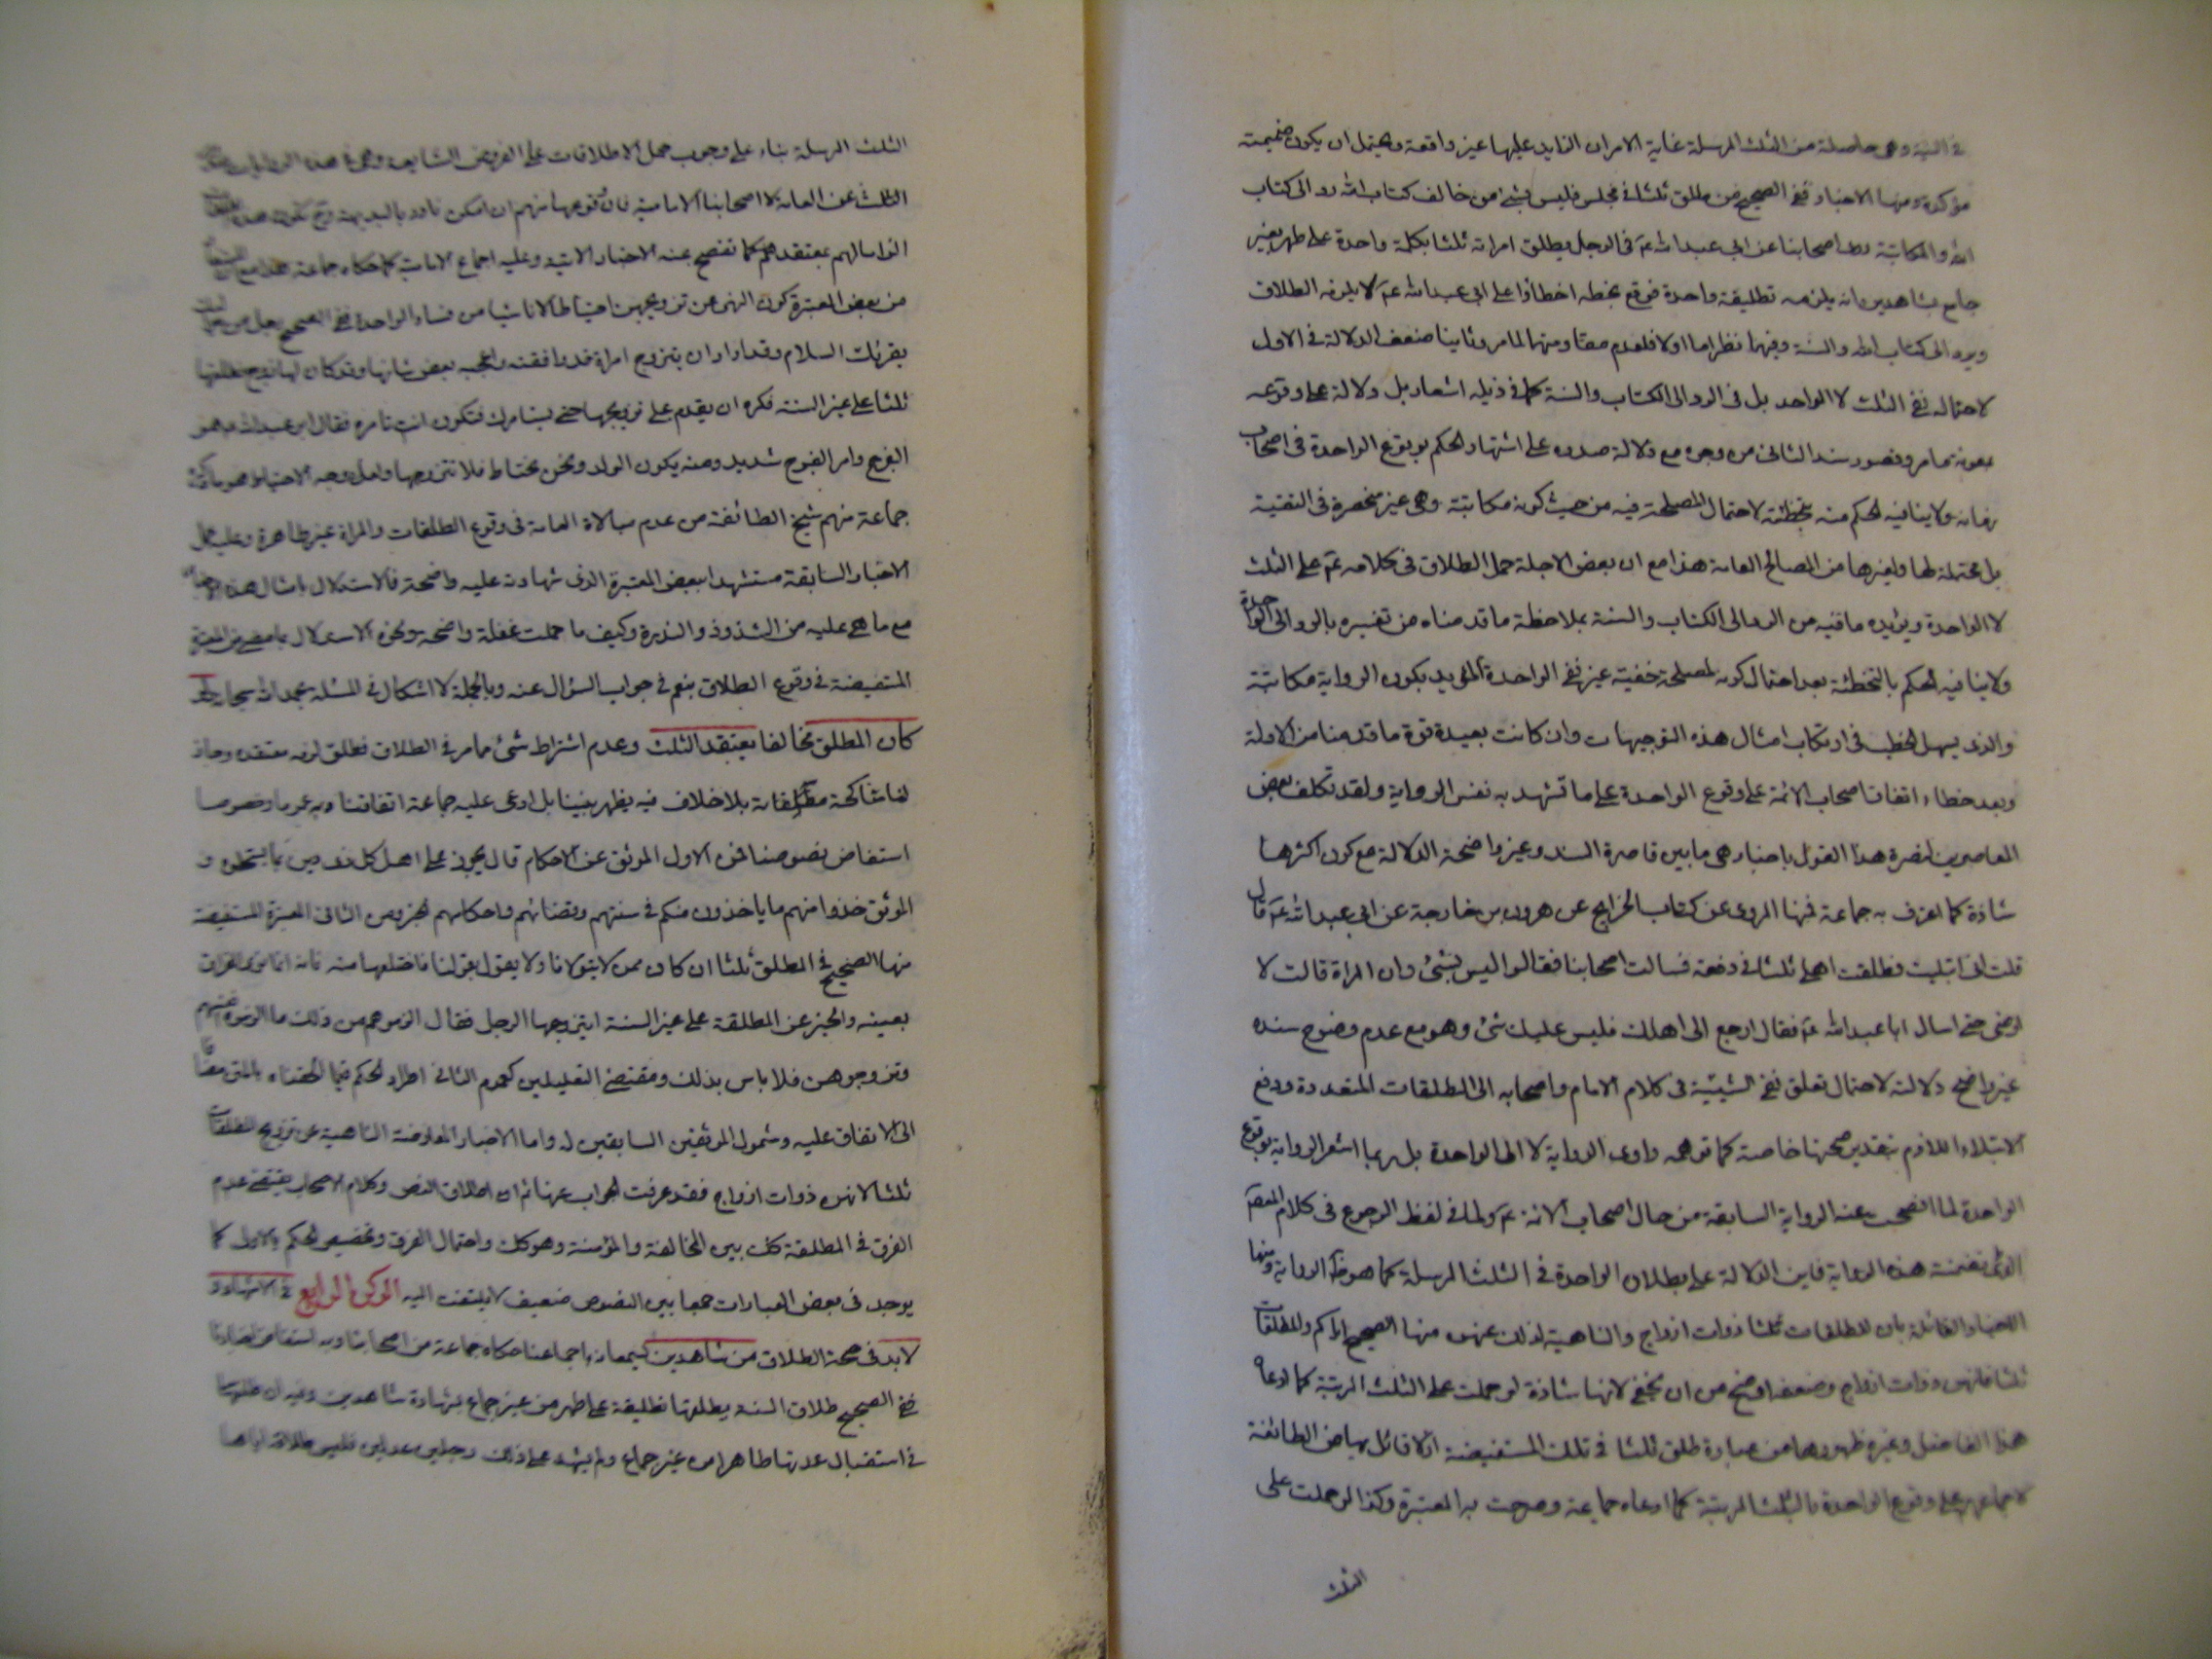 في النية وهي حاصلة من الثلث المرسلة غاية الامر ان الزايد عليها غير واقعة ويحتمل ان يكون ضميمته
مؤكدة ومنها الاخبار ففي الصحيح من طلق ثلثا في مجلس فليس بشئ من خالف كتاب الله رد الى كتاب
الله والمكاتبة روى اصحابنا عن ابي عبد الله عم في الرجل يطلق امراته ثلثا بكلمة واحدة على طهر بغير
جماع بشاهدين انه يلزمه تطليقة واحدة فوقع بخطه اخطاوا على ابي عبد الله عم لا يلزمه الطلاق
ويرد الى كتاب الله والسنة وفيهما نظر اما اولا فلعدم ومنها لما مر وثانيا ضعف الدلالة في الاول
لاحتماله نفي الثلث لا الواحد بل في الرد الى الكتاب والسنة كما في ذيله اشعار بل دلالة على وقوعه
بمعونة ما مر وقصور سند الثاني من وجوه مع دلالة صدره على اشتهار الحكم بوقوع الواحدة في اصحاب
زمانه ولا ينافيه الحكم منه بتخطئته لاحتمال المصلحة فيه من حيث كونه مكاتبة وهي غير منحصرة في التقية
بل محتملة لها ولغيرها من المصالح العامة هذا مع ان بعض الاجلة حمل الطلاق في كلامه عم على الثلث
لا الواحدة ويؤيده ما فيه من الرد الى الكتاب والسنة بملاحظة ما قدمناه من تفسيره بالرد الى الواحدة
ولا ينافيه الحكم بالتخطئة بعد احتمال كونه لمصلحة خفية غير نفي الواحدة المؤيد بكون الرواية مكاتبة
والذي يسهل الخطب في ارتكاب امثال هذه التوجيهات وان كانت بعيدة قوة ما قدمنا من الادلة
وبعد خطاء اتفاق اصحاب الائمة على وقوع الواحدة على ما تشهد به نفس الرواية ولقد تكلف بعض
المعاصرين لنصرة هذا القول باخبار هي ما بين قاصرة السند وغير واضحة الدلالة مع كون اكثرها
شاذة كما اعترف به جماعة فمنها المروى عن كتاب الخرايج عن هرون بن خارجة عن ابي عبد الله عم قال
قلت اني ابتليت فطلقت اهلي ثلثا في دفعة فسالت اصحابنا فقالوا ليس بشئ وان المراة قالت لا
ارضى حتى اسال ابا عبد الله عم فقال ارجع الى اهلك فليس عليك شئ وهو مع عدم وضوح سنده
غير واضح دلالة لاحتمال تعلق نفي الشيئية في كلام الامام واصحابه الى الطلقات المتعددة ودفع
الابتلاء اللازم بتقدير صحتها خاصة كما توهمه راوى الرواية لا الى الواحدة بل ربما اشعر الرواية بوقوع
الواحدة لما افصحت عنه الرواية السابقة من حال اصحاب الائمة عم ولما في لفظ الرجوع في كلام المعصوم
الذي تضمنته هذه الرواية فاين الدلالة على بطلان الواحدة في الثلث المرسلة كما هو الرواية ومنها
الاخبار القائلة بان المطلقات ثلثا ذوات ازواج والناهية لذلك عنهن منها الصحيح اياكم والمطلقات
ثلثا فانهن ذوات ازواج وضعفه اوضح من ان يخفى لانها شاذة لو حملت على الثلث المرتبة كما ادعاه
هذا الفاضل وغيره ظهورها من عبارة طلق ثلثا في تلك المستفيضة اذ لا قائل بها من الطائفة
لاجماعهم على وقوع الواحدة بالثلث المرتبة كما ادعاه جماعة وصرحت به المعتبرة وكذا لو حملت على
الثلث
الثلث المرسلة بناء على وجوب حمل الاطلاقات على الفروض الشايعة وهي في هذه
الثلث عن العامة لا اصحابنا الامامية فان وقوعها منهم ان امكن نادر بالبديهة وح تكون هذه
الزاما لهم بمعتقدهم كما تفصح عنه الاخبار الاتية وعليه اجماع الامامية كما حكاه جماعة هذا مع
من بعض المعتبرة كون النهى عن تزويجهن احتياطا لا ناشيا من فساد الواحدة ففي الصحيح رجل من
يقرئك السلام وقد اراد ان يتزوج امراة قد وافقته واعجبه بعض شانها وقد كان لها زوج فطلقها
ثلثا على غير السنة فكره ان يقدم على تزويجها حتى يستامرك فتكون انت تامره فقال ابو عبد الله هو
الفرج وامر الفرج شديد ومنه يكون الولد ونحن نحتاط فلا تتزوجها ولعل وجه الاحتياط هو ما
جماعة منهم شيخ الطائفة من عدم مبالاة العامة في وقوع الطلقات والمراة غير طاهرة وعليه حمل
الاخبار السابقة مستشهدا ببعض المعتبرة الذي شهادته عليه واضحة فالاستدلال بامثال هذه
مع ما هي عليه من الشذوذ والندرة وكيف ما حملت غفلة واضحة ونحوه الاستدلال بما مضى من المعتبرة
المستفيضة في وقوع الطلاق بنعم في جواب السؤال عنه وبالجملة لا اشكال في المسئلة بحمد الله سبحانه ولو
كان المطلق مخالفا يعتقد الثلث وعدم اشتراط شئ مما مر في الطلاق فطلق لزمه معتقده وجاز
لنا مناكحة مطلقاته بلا خلاف فيه يظهر بيننا بل ادعى عليه جماعة اتفاقنا وبه عموما وخصوصا
استفاض نصوصنا فمن الاول الموثق عن الاحكام قال يجوز على اهل كل ذي دين بما يستحلون و
الموثق خذوا منهم ما ياخذون منكم في سنتهم وقضائهم واحكامهم الخبر ومن الثاني المعتبرة المستفيضة
منها الصحيح في المطلق ثلثا ان كان ممن لا يتولانا ولا يقول بقولنا فاختلعها منه فانه انما نوى الفراق
بعينه والخبر عن المطلقة على غير السنة ايتزوجها الرجل فقال الزموهم من ذلك ما الزموه انفسهم
وتزوجوهن فلا باس بذلك ومقتضى التعليلين كعموم الثاني اطراد الحكم فيما الحقناه بالمتن
الى الاتفاق عليه وشمول الموثقين السابقين له واما الاخبار المعارضة الناهية عن تزويج المطلقات
ثلثا لانهن ذوات ازواج فقد عرفت الجواب عنها ثم ان اطلاق النص وكلام الاصحاب يقتضى عدم
الفرق في المطلقة كك بين المخالفة والمؤمنة وهو كذلك واحتمال الفرق وتخصيص الحكم بالاول كما
يوجد في بعض العبارات جمعا بين النصوص ضعيف لا يلتفت اليه الركن الرابع في الاشهاد و
لا بد في صحة الطلاق من شاهدين يسمعانه اجماعا حكاه جماعة من اصحابنا وبه استفاض اخبارنا
ففي الصحيح طلاق السنة يطلقها تطليقة على طهر من غير جماع بشهادة شاهدين وفيه ان طلقها
في استقبال عدتها طاهرا من غير جماع ولم يشهد على ذلك رجلين عدلين فليس طلاقه اياها